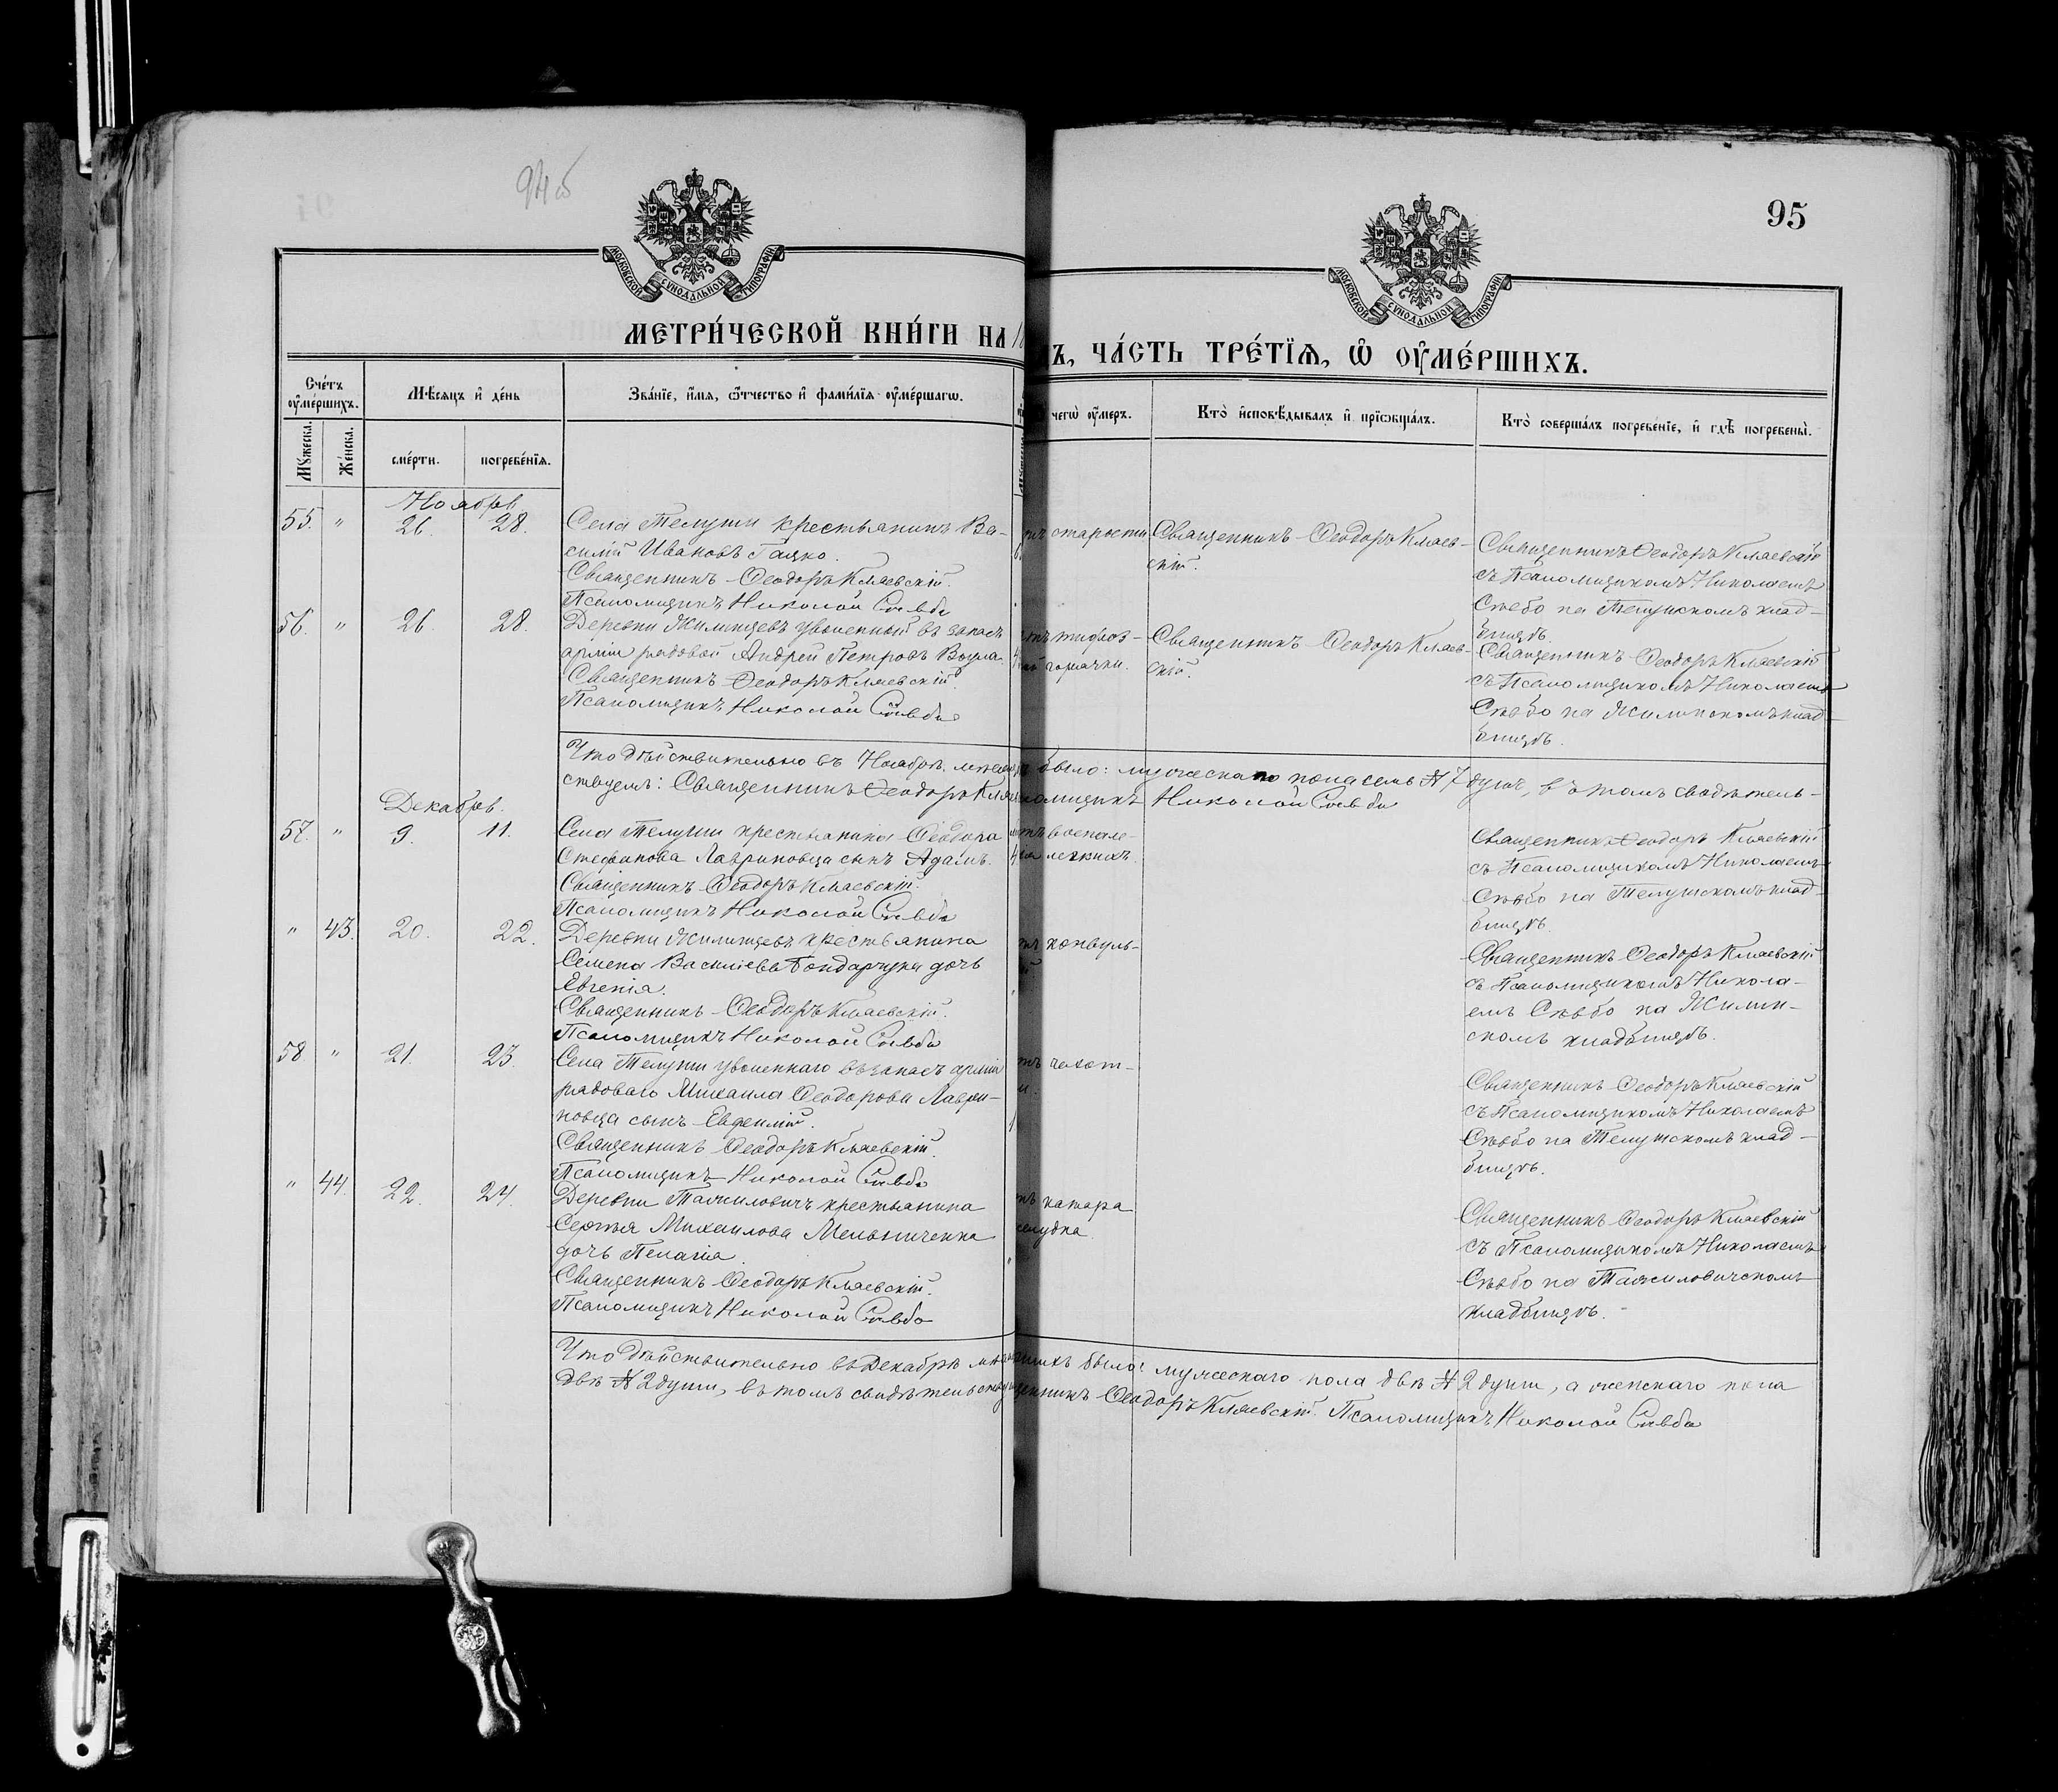 94об
95
МОСКОВСКОЙ СѴНОДАЛЬНОЙ ТИПОГРАФІИ
МОСКОВСКОЙ СѴНОДАЛЬНОЙ ТИПОГРАФІИ
МЕТРИ́ЧЕСКОЙ КНИ́ГИ НА 18
Ъ, ЧА́СТЬ ТРЕ́ТІѦ, Ѡ҆ ОУ҆МЕ́РШИХЪ.
Сче́тъ оу҆ме́ршихъ.
Мѣ́сяцъ и҆ де́нь
Зва́нїе, и҆́мѧ, ѻ҆́тчество и҆ фами́лїѧ оу҆ме́ршагѡ.
чегѡ̀ оу҆́меръ.
Кто̀ и҆сповѣ́дывалъ и҆ прїѡбща́лъ.
Кто̀ соверша́лъ погребе́нїе, и҆ гдѣ̀ погребены̀.
Мꙋ́жеска.
Же́нска.
сме́рти.
погребе́нїѧ.
Ноябрь
55. " 26. 28.
Села Телуши крестьянинъ Ва-
силій Ивановъ Гацко.
Священникъ Ѳеодоръ Кляевскій.
Псаломщикъ Николай Стебо
старости
Священникъ Ѳеодоръ Кляев-
скій.
Священникъ Ѳеодоръ Кляевскій
съ Псаломщикомъ Николаемъ
Стебо на Телушскомъ клад-
бищѣ.
56. " 26. 28.
Деревни Жилинцевъ уволенный въ запасъ
арміи рядовой Андрей Петровъ
Священникъ Ѳеодоръ Кляевскій.
Псаломщикъ Николай Стебо
тифоз-
горячки.
Священникъ Ѳеодоръ Кляев-
скій.
Священникъ Ѳеодоръ Кляевскій
съ Псаломщикомъ Николаемъ
Стебо на Жилинскомъ клад-
бищѣ.
Что дѣйствительно въ Ноябрѣ было: мужескаго пола семь № 7 душъ, въ томъ свидѣтель-
ствуемъ: Священникъ Ѳеодоръ Николай Стебо
Декабрь.
57. " 9. 11.
Села Телуши крестьянина Ѳеодора
Стефанова Лавриновца сынъ Адамъ.
Священникъ Ѳеодоръ Кляевскій.
Псаломщикъ Николай Стебо
воспале-
легкихъ.
Священникъ Ѳеодоръ Кляевскій
съ Псаломщикомъ Николаемъ
Стебо на Телушскомъ клад-
бищѣ.
" 43. 20. 22.
Деревни Жилинцевъ крестьянина
Семена Василіева Бондарчука дочь
Евгенія.
Священникъ Ѳеодоръ Кляевскій.
Псаломщикъ Николай Стебо
конвуль-
Священникъ Ѳеодоръ Кляевскій
съ Псаломщикомъ Никола-
емъ Стебо на Жилин-
скомъ кладбищѣ.
58 " 21. 23.
Села Телуши уволеннаго въ запасъ арміи
рядоваго Михаила Ѳеодорова Лаври-
новца сынъ Евфимій.
Священникъ Ѳеодоръ Кляевскій.
Псаломщикъ Николай Стебо
чахот-
Священникъ Ѳеодоръ Кляевскій
съ Псаломщикомъ Николаемъ
Стебо на Телушскомъ клад-
бищѣ.
" 44. 22. 24.
Деревни Тажиловичъ крестьянина
Сергѣя Михаилова Мельниченка
дочь Пелагія.
Священникъ Ѳеодоръ Кляевскій.
Псаломщикъ Николай Стебо
катара
Священникъ Ѳеодоръ Кляевскій
съ Псаломщикомъ Николаемъ
Стебо на Тажиловичскомъ
кладбищѣ.
Что дѣйствительно въ Декабрѣ было: мужескаго пола двѣ № 2 души, а женскаго пола
двѣ № 2 души, въ томъ Ѳеодоръ Кляевскій. Псаломщикъ Николай Стебо